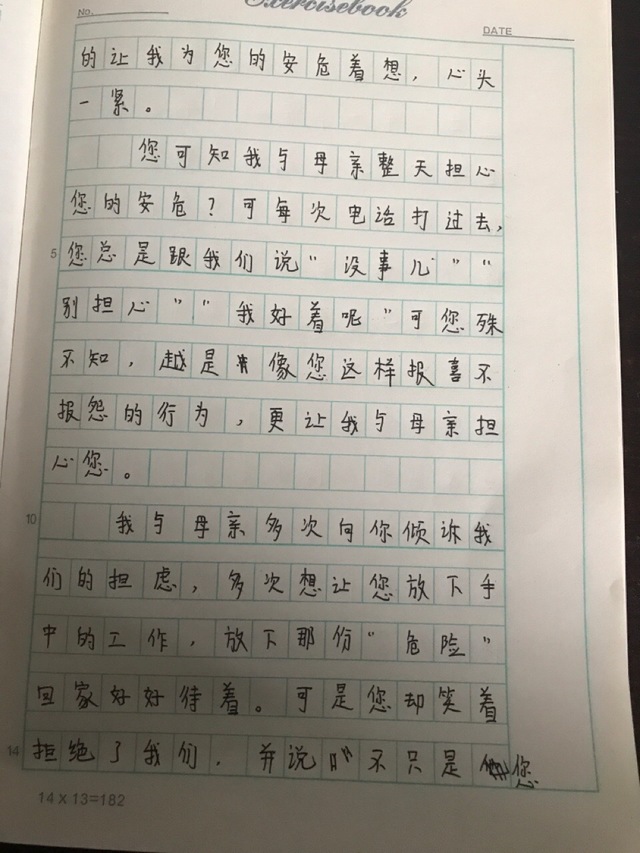 Exercisebook
No.
DATE
的让我为您的安危着想，心头
一紧。
您可知我与母亲整天担心
您的安危？可每次电话打过去，
5
您总是跟我们说“没事儿”“
别担心”“我好着呢”可您殊
不知，越是像您这样报喜不
报怨的行为，更让我与母亲担
心您。
10
我与母亲多次向你倾诉我
们的担虑，多次想让您放下手
中的工作，放下那份“危险”
回家好好待着。可是您却笑着
14
拒绝了我们，并说“不只是您
14×13=182